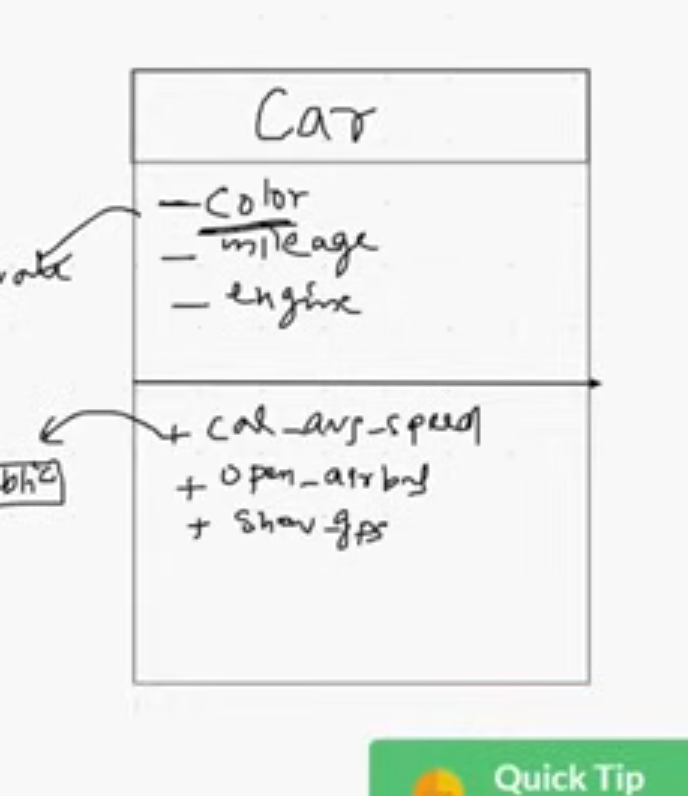 Car
- Color
- mileage
- engine
+ cal_avg_speed
+ open_airbag
+ show_gps
Quick Tip